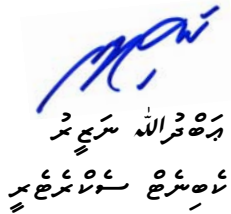 ޢަބްދުﷲ ނަޒީރު
ކެބިނެޓް ސެކްރެޓަރީ